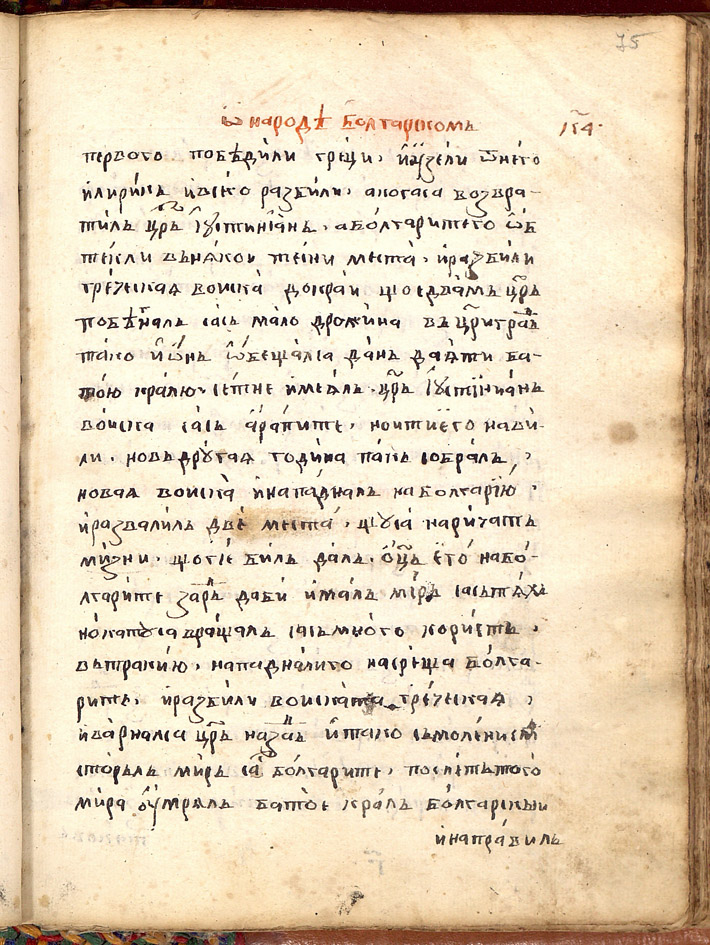 75
ѿ народѣ болгарскомъ
первого победили греци, и узели ѿ него
илирикъ и всего разбили, а когаса возвра-
тилъ цр҃ь їустинїанъ, а болгарите го ѡб
текли въ някои тесни места, и разбили
греческая воиска докраи що едвамъ цр҃ь
побегналъ сась мало дружина въ цр҃играⷣ
тако и ѡнъ ѡбещался дань даяти ба-
тою кралю, сетне имеялъ цр҃ь їустинїанъ
воиска сась арапите, но и тїе го нави-
ли, но въ другая година пакъ собралъ
новая воиска и нападналъ на болгарїю,
и развалилъ две места, що са наричатъ
мизни, що ги е билъ далъ ѻц҃ъ его на бо-
лгарите за даби ималъ миръ сасъ тяхъ
но като са вращалъ сасъ много користь,
въ тракию, нападнали го насреща болга-
рите, и разбили воиската греческая,
и варналса цр҃ь назаⷣ и тако съ молениемъ
сторилъ миръ са болгарите, после тъ того
мира умрялъ батое кралъ болгарскыи
и направилъ